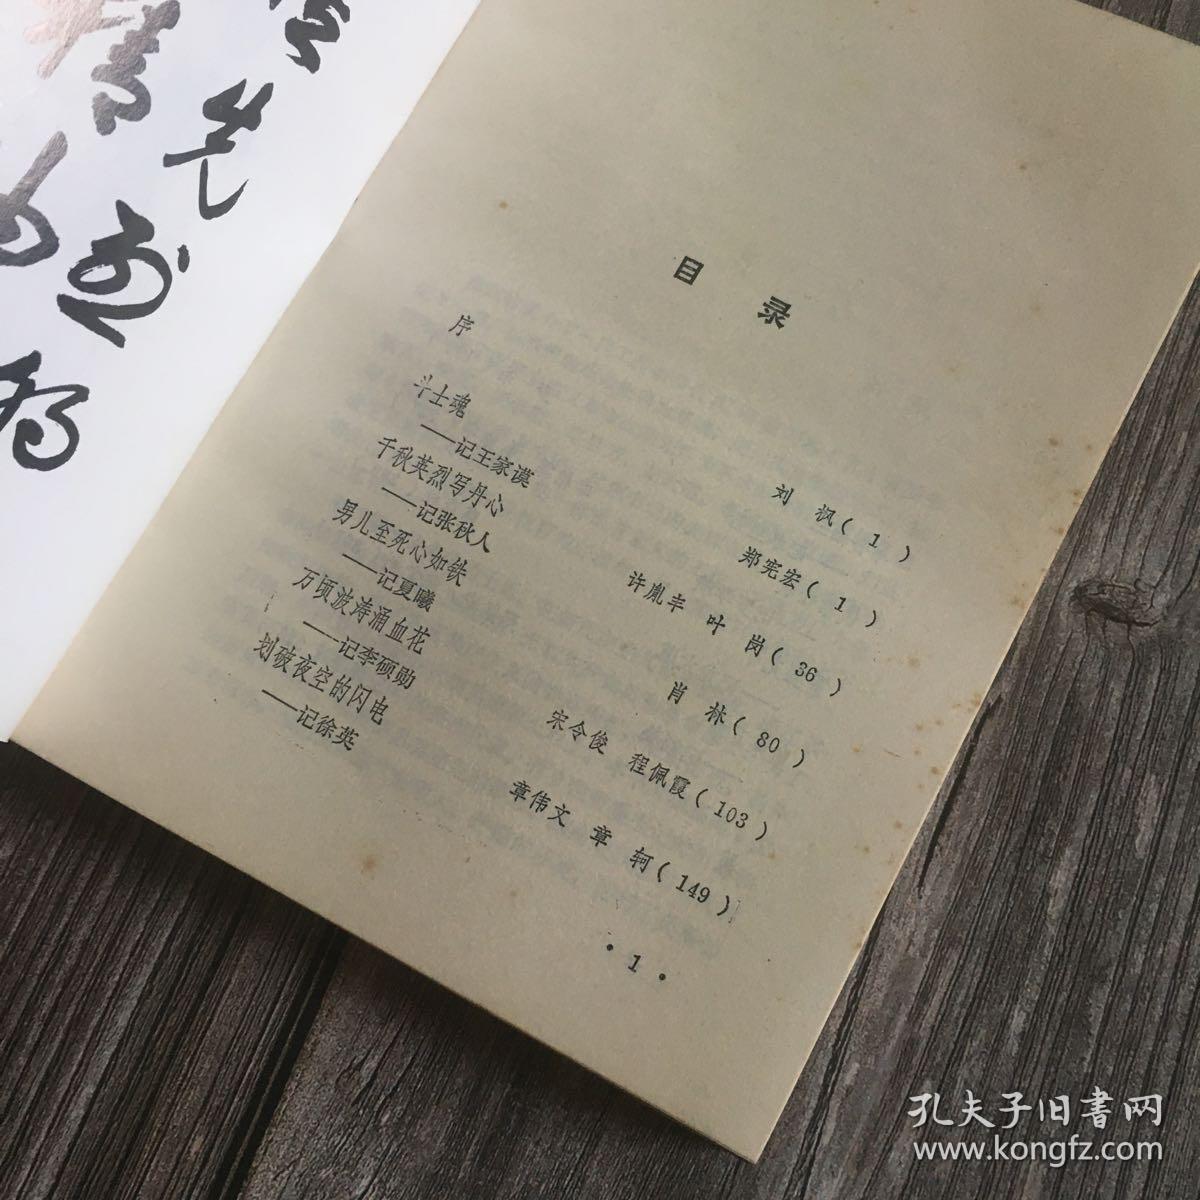 目 录
序 刘 枫( 1 )
斗士魂
——记王家谟 郑宪宏( 1 )
千秋英烈写丹心
——记张秋人 许胤丰 叶 岗( 36 )
男儿至死心如铁
——记夏曦 肖 林( 80 )
万顷波涛涌血花
——记李硕勋 宋令俊 程佩霞( 103 )
划破夜空的闪电
——记徐英 章伟文 章 轲( 149 )
• 1 •
孔夫子旧书网
www.kongfz.com